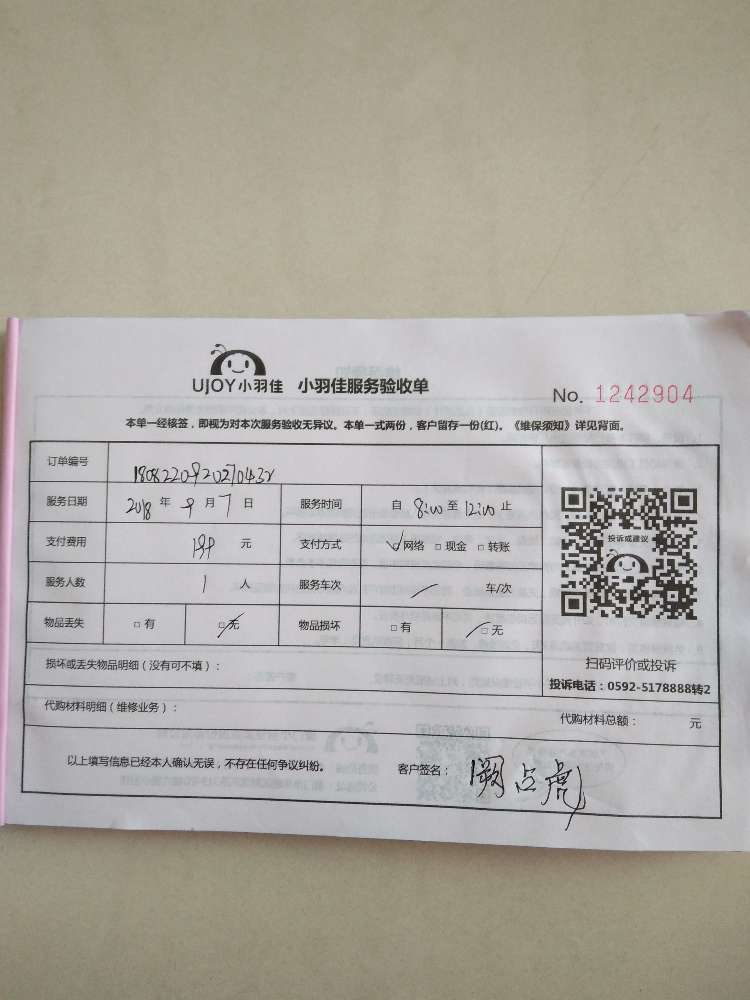 UJOY小羽佳 小羽佳服务验收单
No. 1242904
本单一经核签，即视为对本次服务验收无异议。本单一式两份，客户留存一份(红)。《维保须知》详见背面。
订单编号
服务日期 2018 年 9 月 7 日 服务时间 自 8:00 至 12:00 止
支付费用 元 支付方式 ☑网络 □现金 □转账
服务人数 1 人 服务车次 / 车/次
物品丢失 □有 ☑无 物品损坏 □有 ☑无
投诉或建议
扫码评价或投诉
投诉电话：0592-5178888转2
损坏或丢失物品明细（没有可不填）：
代购材料明细（维修业务）： 代购材料总额： 元
以上填写信息已经本人确认无误，不存在任何争议纠纷。 客户签名： 阙占虎